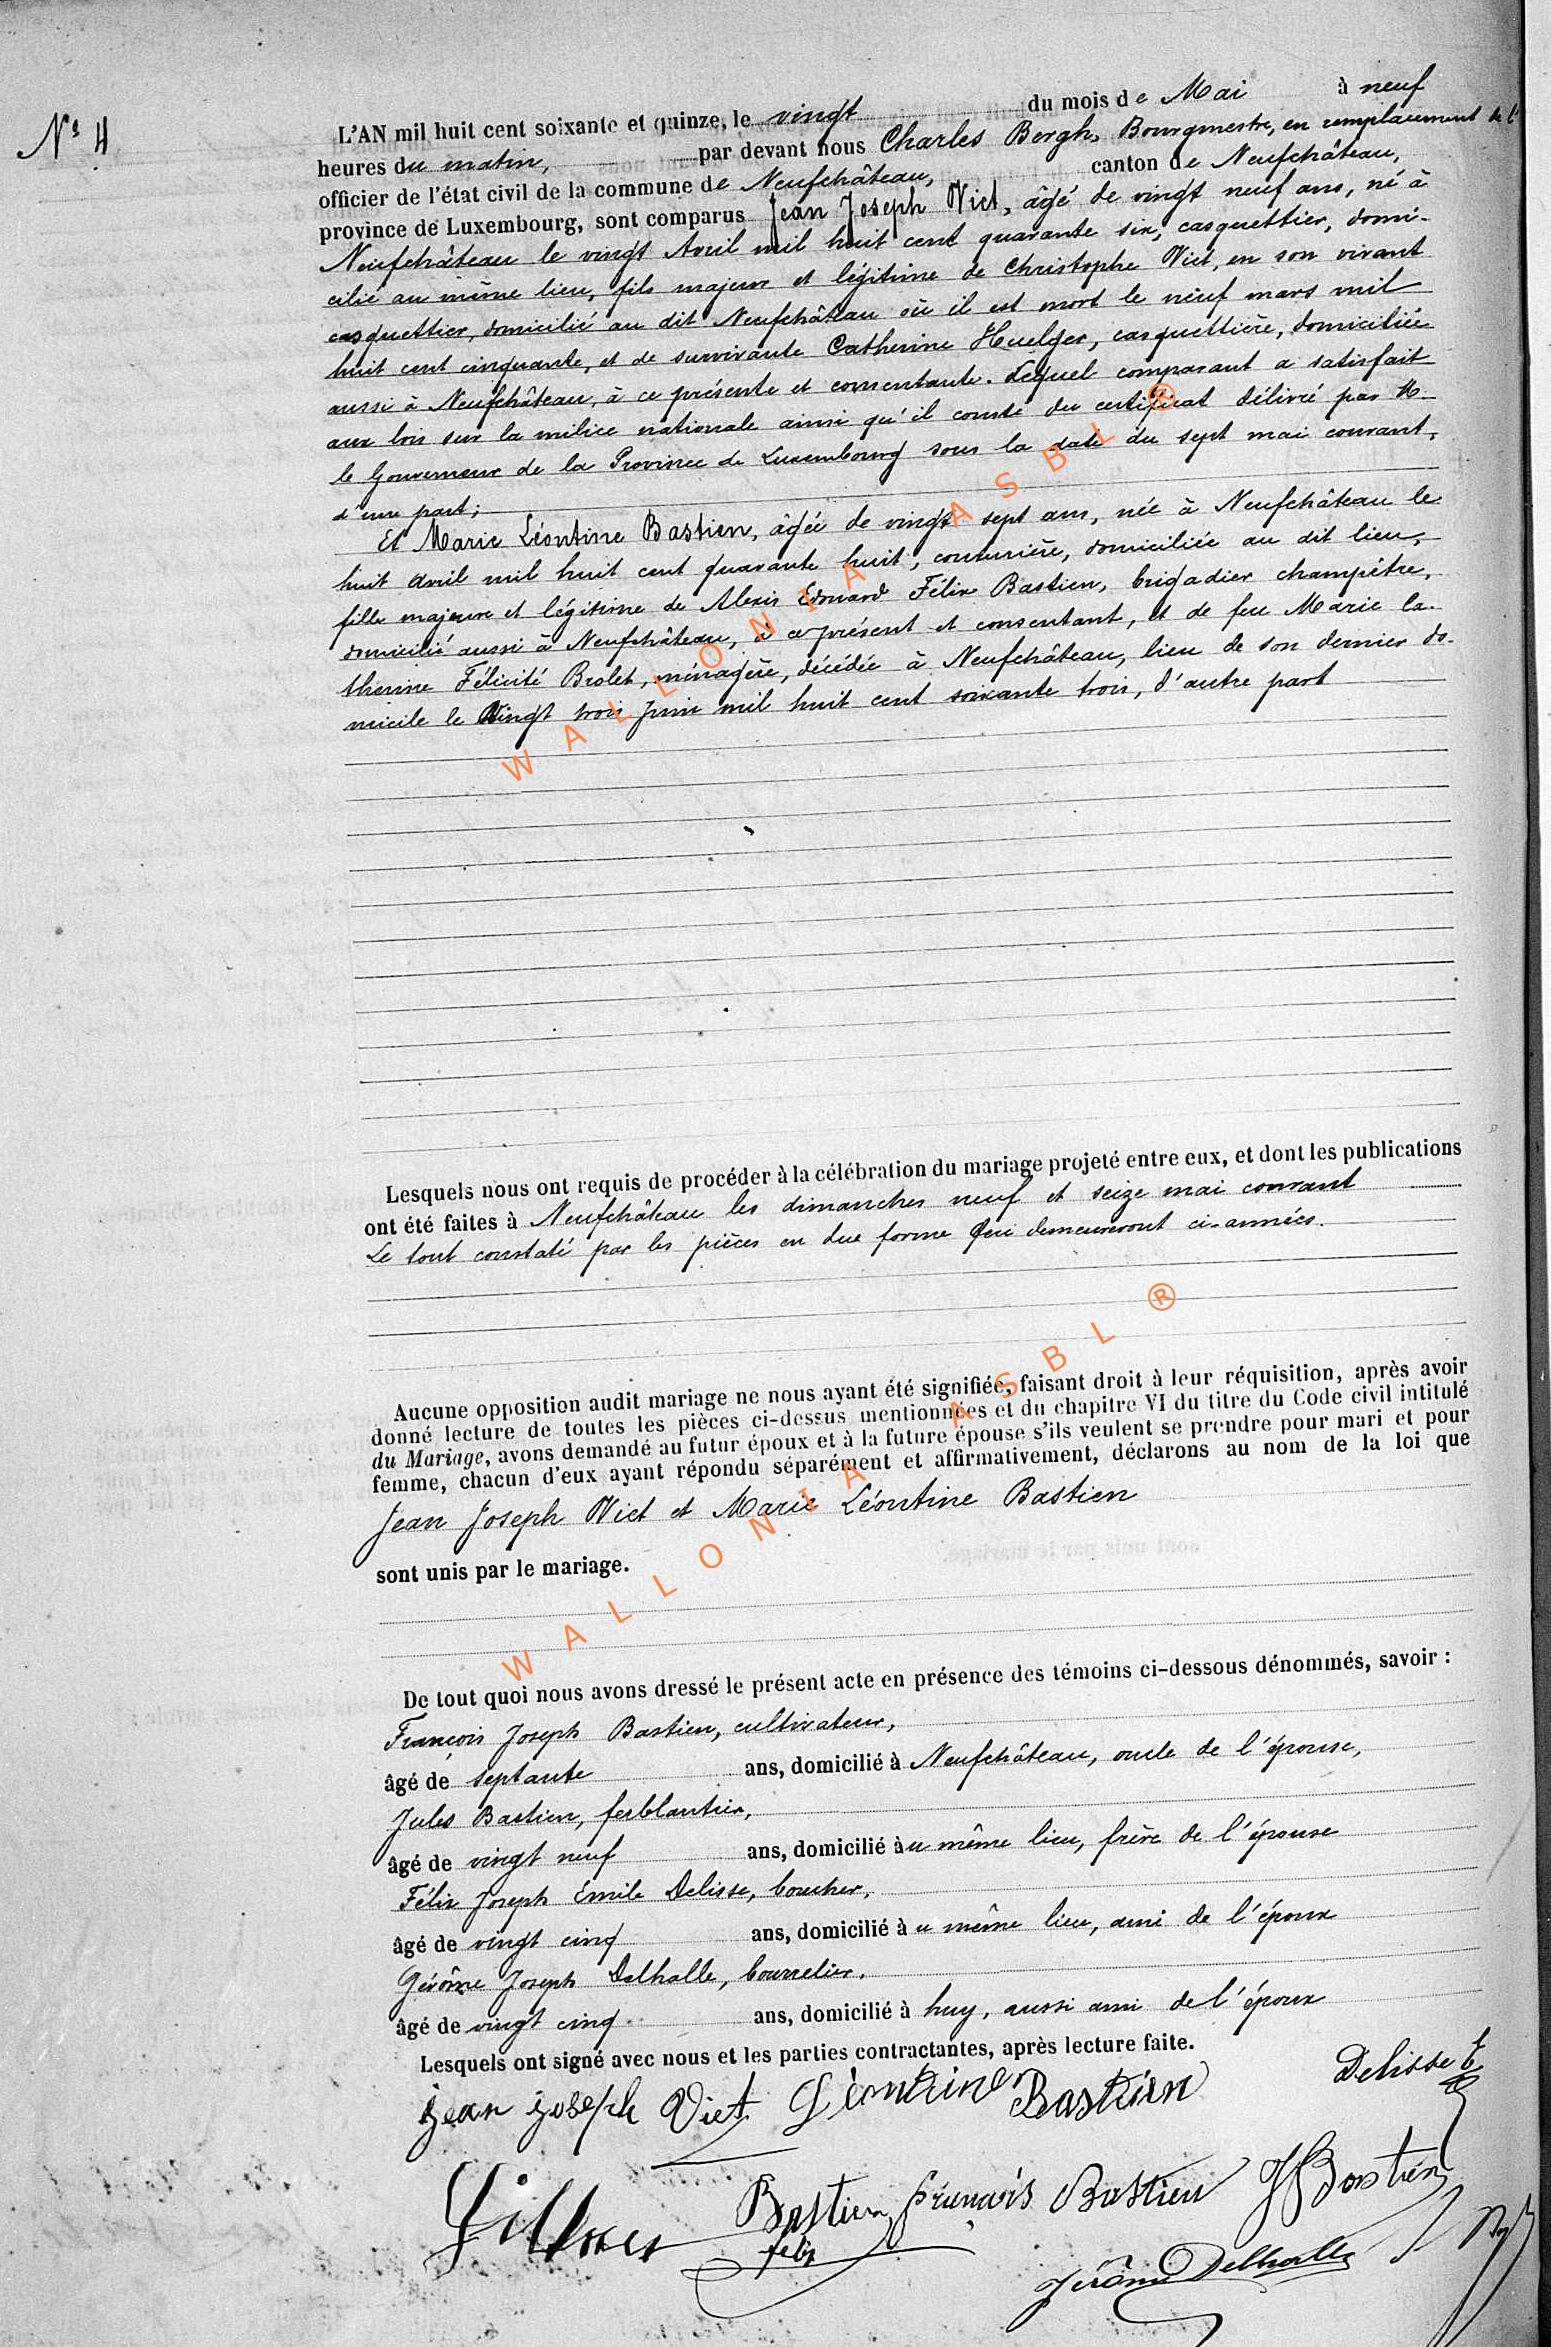 Nº 4
L'AN mil huit cent soixante et quinze, le vingt du mois de Mai à neuf
heures du matin, par devant nous Charles Bergh, Bourgmestre, en remplacement de l'
officier de l'état civil de la commune de Neufchâteau, canton de Neufchâteau,
province de Luxembourg, sont comparus Jean Joseph Viet, âgé de vingt neuf ans, né à
Neufchâteau le vingt Avril mil huit cent quarante six, casquettier, domi-
cilié au même lieu, fils majeur et légitime de Christophe Viet, en son vivant
casquettier, domicilié au dit Neufchâteau où il est mort le neuf mars mil
huit cent cinquante, et de survivante Catherine Huelger, casquettière, domiciliée
aussi à Neufchâteau, à ce présente et consentante. Lequel comparant a satisfait
aux lois sur la milice nationale ainsi qu'il conste du certificat délivré par M.
le Gouverneur de la Province de Luxembourg sous la date du sept mai courant,
d'une part;
Et Marie Léontine Bastien, âgée de vingt sept ans, née à Neufchâteau le
huit avril mil huit cent quarante huit, couturière, domiciliée au dit lieu,
fille majeure et légitime de Alexis Edouard Félix Bastien, brigadier champêtre,
domicilié aussi à Neufchâteau, à ce présent et consentant, et de feu Marie Ca-
therine Félicité Brolet, ménagère, décédée à Neufchâteau, lieu de son dernier do-
micile le Vingt trois Juin mil huit cent soixante trois, d'autre part
WALLONIA ASBL ®
Lesquels nous ont requis de procéder à la célébration du mariage projeté entre eux, et dont les publications
ont été faites à Neufchâteau les dimanches neuf et seize mai courant
Le tout constaté par les pièces en due forme qui demeureront ci-années.
Aucune opposition audit mariage ne nous ayant été signifiée, faisant droit à leur réquisition, après avoir
donné lecture de toutes les pièces ci-dessus mentionnées et du chapitre VI du titre du Code civil intitulé
du Mariage, avons demandé au futur époux et à la future épouse s'ils veulent se prendre pour mari et pour
femme, chacun d'eux ayant répondu séparément et affirmativement, déclarons au nom de la loi que
Jean Joseph Viet et Marie Léontine Bastien
sont unis par le mariage.
WALLONIA ASBL ®
De tout quoi nous avons dressé le présent acte en présence des témoins ci-dessous dénommés, savoir :
François Joseph Bastien, cultivateur,
âgé de septante ans, domicilié à Neufchâteau, oncle de l'épouse,
Jules Bastien, ferblantier,
âgé de vingt neuf ans, domicilié au même lieu, frère de l'épouse
Félix Joseph Emile Delisse, boucher,
âgé de vingt cinq ans, domicilié au même lieu, ami de l'époux
Gérôme Joseph Delhalle, bourrelier,
âgé de vingt cinq ans, domicilié à huy, aussi ami de l'époux
Lesquels ont signé avec nous et les parties contractantes, après lecture faite.
Jean joseph Viet Léontine Bastien Delisse E
Bastien felix françois Bastien J Bastien
Jérôme Delhalle